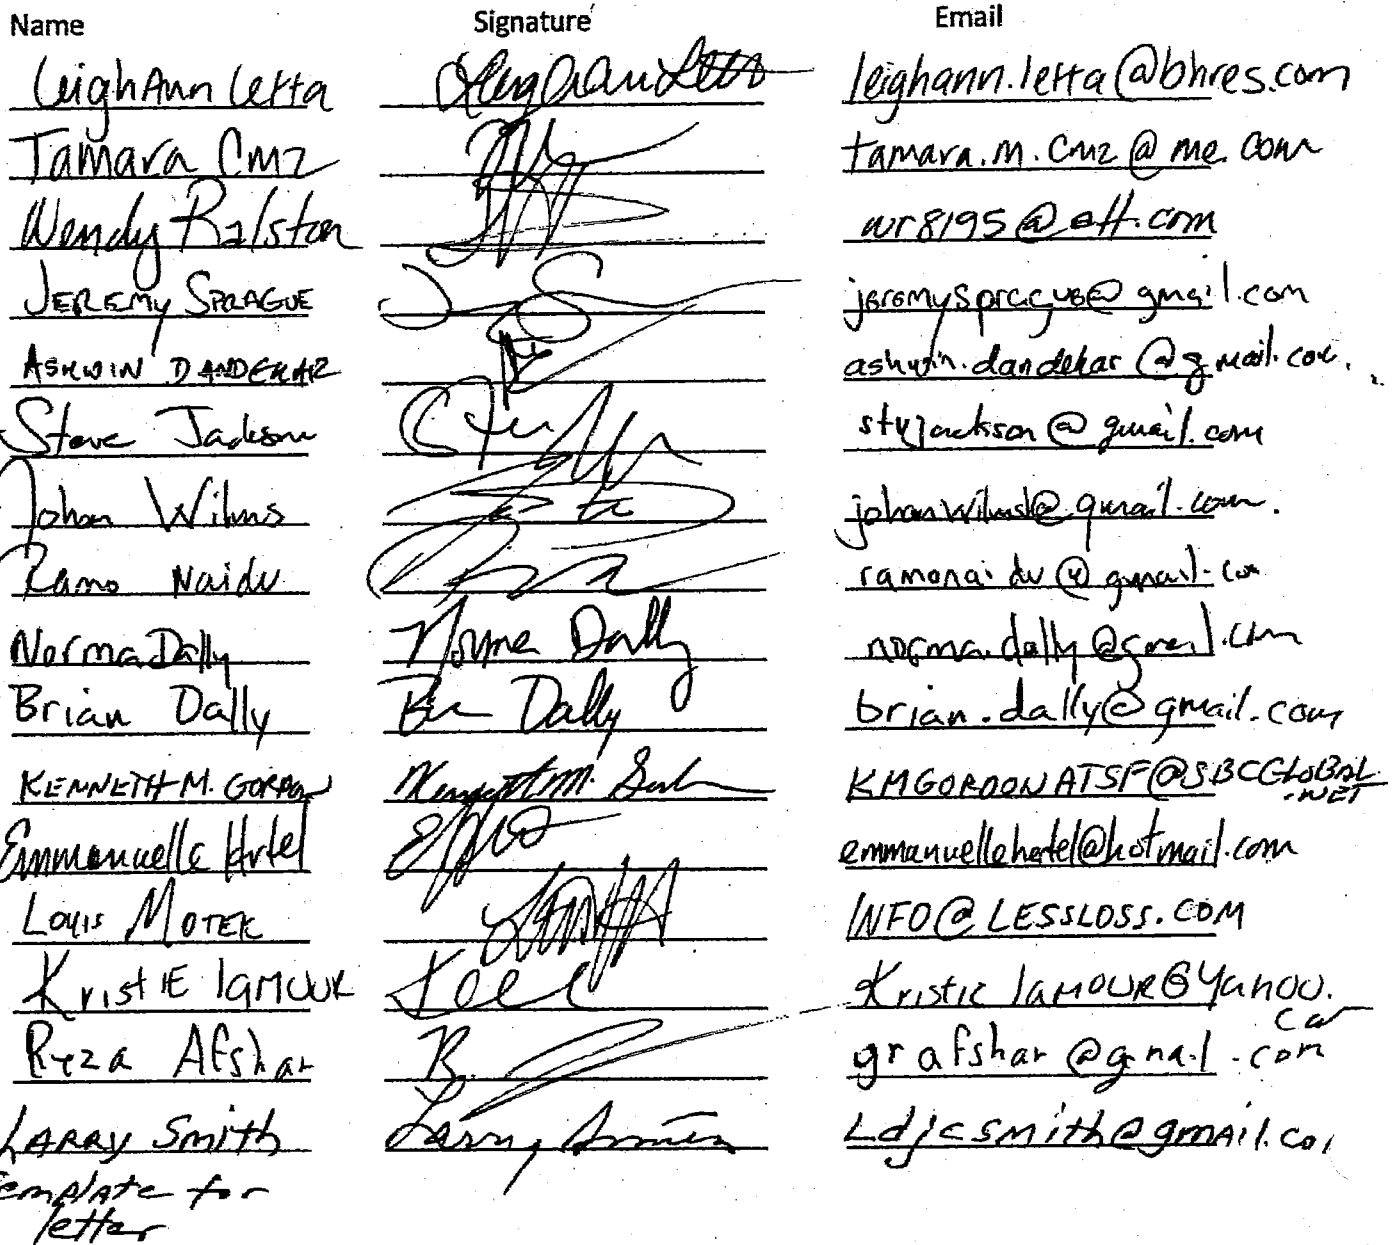 Name Signature Email
LeighAnn Letta leighann.letta@bhres.com
Tamara Cmz tamara.m.cmz@me.com
Wendy Ralston wr8195@att.com
JEREMY SPRAGUE jeremysprague@gmail.com
ASHWIN DANDEKAR ashwin.dandekar@gmail.com
Steve Jackson styjackson@gmail.com
Johan Wilms
Ramo Naidu ramonaidu@gmail.com
Norma Dally Norma Dally norma.dally@gmail.com
Brian Dally Dally brian.dally@gmail.com
KENNETH M. GORDON Kenneth M. KMGORDONATSF@SBCGLOBAL
.NET
Emmanuelle Hertel emmanuellehertel@hotmail.com
Louis MOTEK INFO@LESSLOSS.COM
KristIE lamour Kristie lamour@Yahoo.
com
Reza Afshar R. grafshar@gmail.com
LARRY Smith Larry Smith Ldjcsmith@gmail.co
Template for
letter